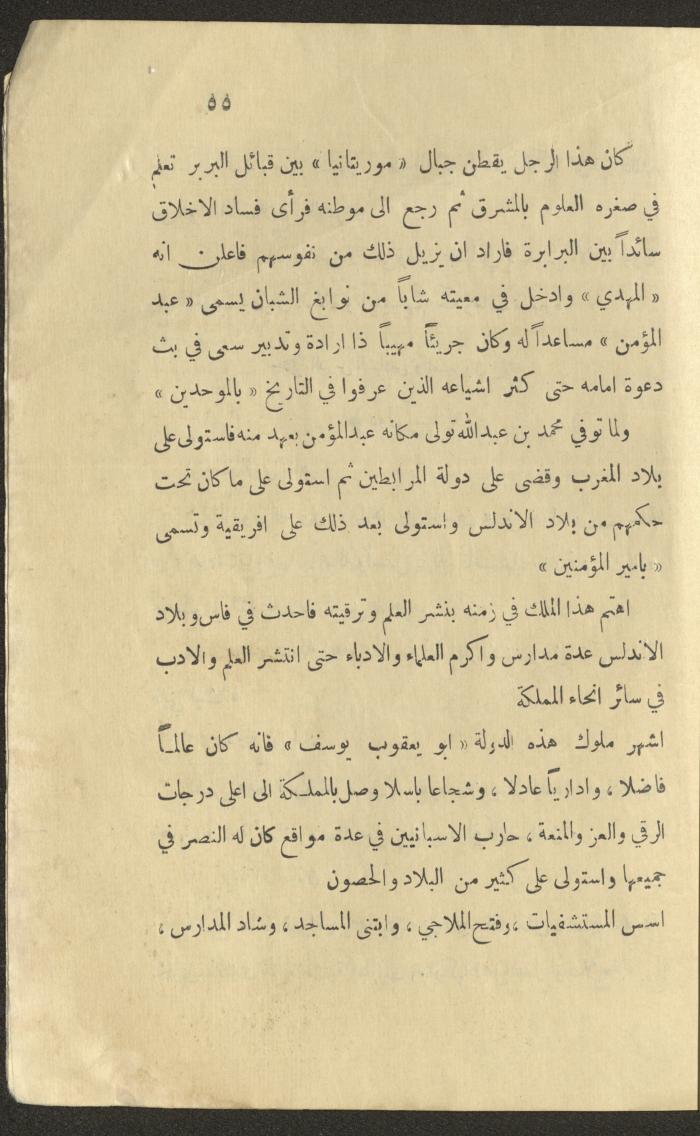 ٥٥
كان هذا الرجل يقطن جبال « موريتانيا » بين قبائل البربر تعلم
في صغره العلوم بالمشرق ثم رجع الى موطنه فرأى فساد الاخلاق
سائداً بين البرابرة فاراد ان يزيل ذلك من نفوسهم فاعلن انه
« المهدي » وادخل في معيته شاباً من نوابغ الشبان يسمى « عبد
المؤمن » مساعداً له وكان جريئاً مهيباً ذا ارادة وتدبير سعى في بث
دعوة امامه حتى كثر اشياعه الذين عرفوا في التاريخ « بالموحدين »
ولما توفي محمد بن عبدالله تولى مكانه عبدالمؤمن بعهد منه فاستولى على
بلاد المغرب وقضى على دولة المرابطين ثم استولى على ما كان تحت
حكمهم من بلاد الاندلس واستولى بعد ذلك على افريقية وتسمى
« بامير المؤمنين »
اهتم هذا الملك في زمنه بنشر العلم وترقيته فاحدث في فاس وبلاد
الاندلس عدة مدارس واكرم العلماء والادباء حتى انتشر العلم والادب
في سائر انحاء المملكة
اشهر ملوك هذه الدولة « ابو يعقوب يوسف » فانه كان عالماً
فاضلا ، وادارياً عادلا ، وشجاعا باسلا وصل بالمملكة الى اعلى درجات
الرقي والعز والمنعة ، حارب الاسبانيين في عدة مواقع كان له النصر في
جميعها واستولى على كثير من البلاد والحصون
اسس المستشفيات ، وفتح الملاجي ، وابتنى المساجد ، وشاد المدارس ،